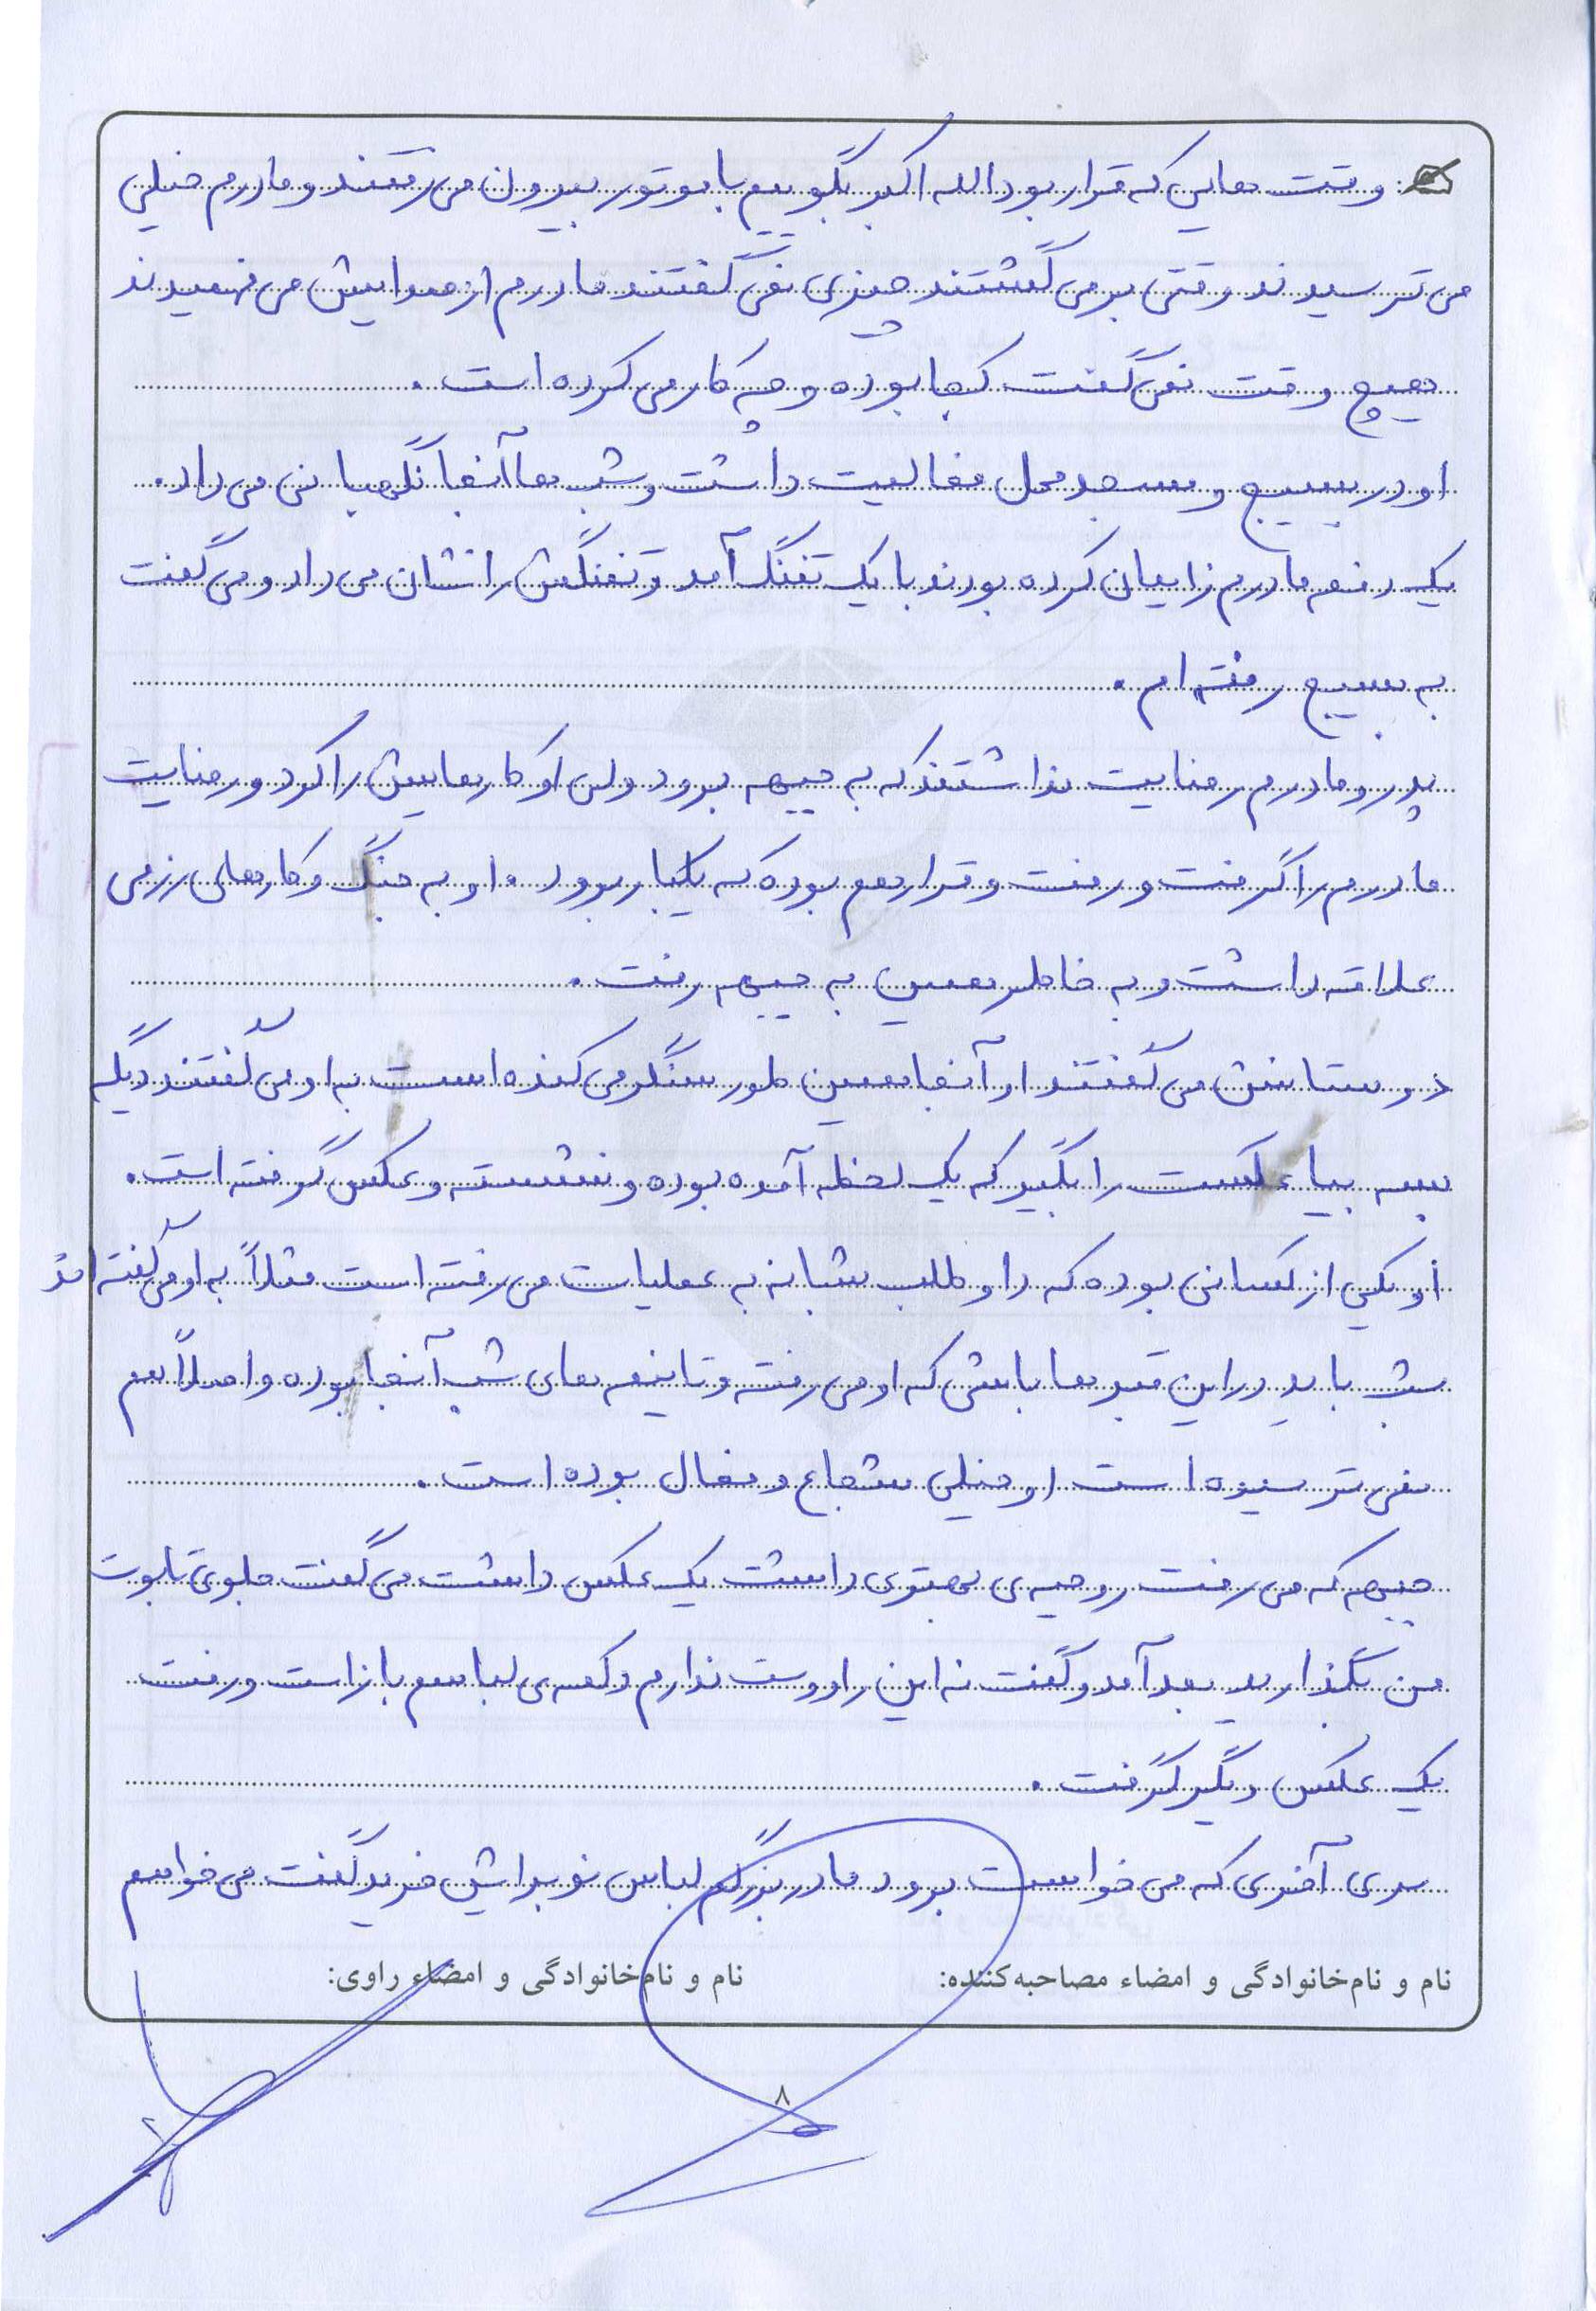 وقت هایی که قرار بود الله اکبر بگوییم با موتور بیرون می رفتند و مادرم خیلی
می ترسیدند وقتی برمی گشتند چیزی نمی گفتند مادرم از صدایش می فهمیدند
هیچ وقت نمی گفت کجا بوده و چه کار می کرده است .
او در بسیج و مسجد محل فعالیت داشت و شب ها آنجا نگهبانی می داد.
یک دفعه مادرم زایمان کرده بودند با یک تفنگ آمد و تفنگش را نشان می داد و می گفت
به بسیج رفته ام .
پدر و مادرم رضایت نداشتند که به جبهه برود ولی او کارهایش را کرد و رضایت
مادرم را گرفت و رفت و قرار هم بوده که یکبار برود . او به جنگ و کارهای رزمی
علاقه داشت و به خاطر همین به جبهه رفت .
دوستانش می گفتند او آنجا همین طور سنگر می کنده است به او می گفتند دیگه
بسه بیا عکست را بگیر که یک لحظه آمده بوده و نشسته و عکس گرفته است .
او یکی از کسانی بوده که داوطلب شبانه به عملیات می رفته است مثلاً به او می گفته اند
شب باید در این قبرها باشی که او می رفته و تا نیمه های شب آنجا بوده و اصلاً هم
نمی ترسیده است او خیلی شجاع و فعال بوده است .
جبهه که می رفت روحیه ی بهتری داشت یک عکس داشت می گفت جلوی تابوت
من بگذارید بعد آمد و گفت نه این را دوست ندارم دکمه ی لباسم باز است و رفت
یک عکس دیگر گرفت .
سری آخری که می خواست برود مادربزرگم لباس نو برایش خرید گفت می خواهم
نام و نام‌خانوادگی و امضاء مصاحبه‌کننده: نام و نام‌خانوادگی و امضاء راوی:
۸